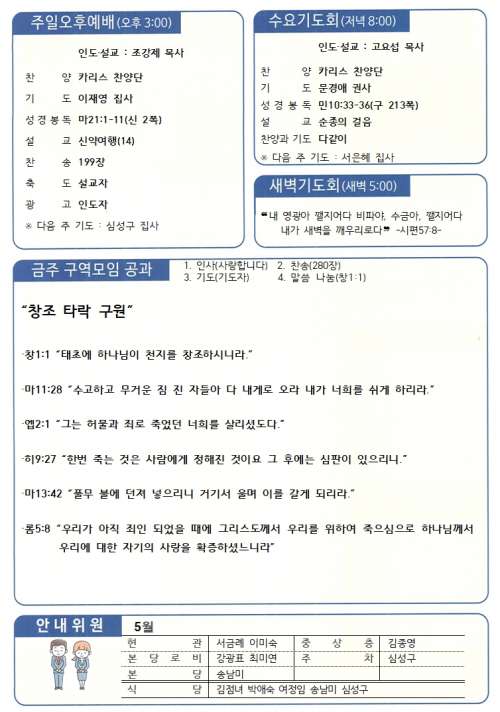 주일오후예배(오후 3:00)
인도·설교 : 조강제 목사
찬 양 카리스 찬양단
기 도 이재영 집사
성 경 봉 독 마21:1-11(신 2쪽)
설 교 신약여행(14)
찬 송 199장
축 도 설교자
광 고 인도자
※ 다음 주 기도 : 심성구 집사
수요기도회(저녁 8:00)
인도·설교 : 고요섭 목사
찬 양 카리스 찬양단
기 도 문경애 권사
성 경 봉 독 민10:33-36(구 213쪽)
설 교 순종의 걸음
찬양과 기도 다같이
※ 다음 주 기도 : 서은혜 집사
새벽기도회(새벽 5:00)
❝내 영광아 깰지어다 비파야, 수금아, 깰지어다
내가 새벽을 깨우리로다❞ -시편57:8-
금주 구역모임 공과
1. 인사(사랑합니다) 2. 찬송(280장)
3. 기도(기도자) 4. 말씀 나눔(창1:1)
“창조 타락 구원”
·창1:1 “태초에 하나님이 천지를 창조하시니라.”
·마11:28 “수고하고 무거운 짐 진 자들아 다 내게로 오라 내가 너희를 쉬게 하리라.”
·엡2:1 “그는 허물과 죄로 죽었던 너희를 살리셨도다.”
·히9:27 “한번 죽는 것은 사람에게 정해진 것이요 그 후에는 심판이 있으리니.”
·마13:42 “풀무 불에 던져 넣으리니 거기서 울며 이를 갈게 되리라.”
·롬5:8 “우리가 아직 죄인 되었을 때에 그리스도께서 우리를 위하여 죽으심으로 하나님께서
우리에 대한 자기의 사랑을 확증하셨느니라”
안내위원
5월
현 관 서금례 이미숙 중 상 층 김종영
본 당 로 비 강광표 최미연 주 차 심성구
본 당 송남미
식 당 김점녀 박애숙 여정임 송남미 심성구